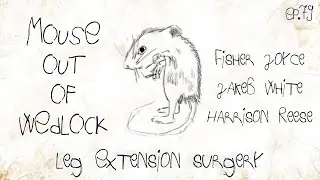 MOUSE
OUT
OF
WEDLOCK
EP.79
FISHER JOYCE
JAKEB WHITE
HARRISON REESE
LEG EXTENSION SURGERY